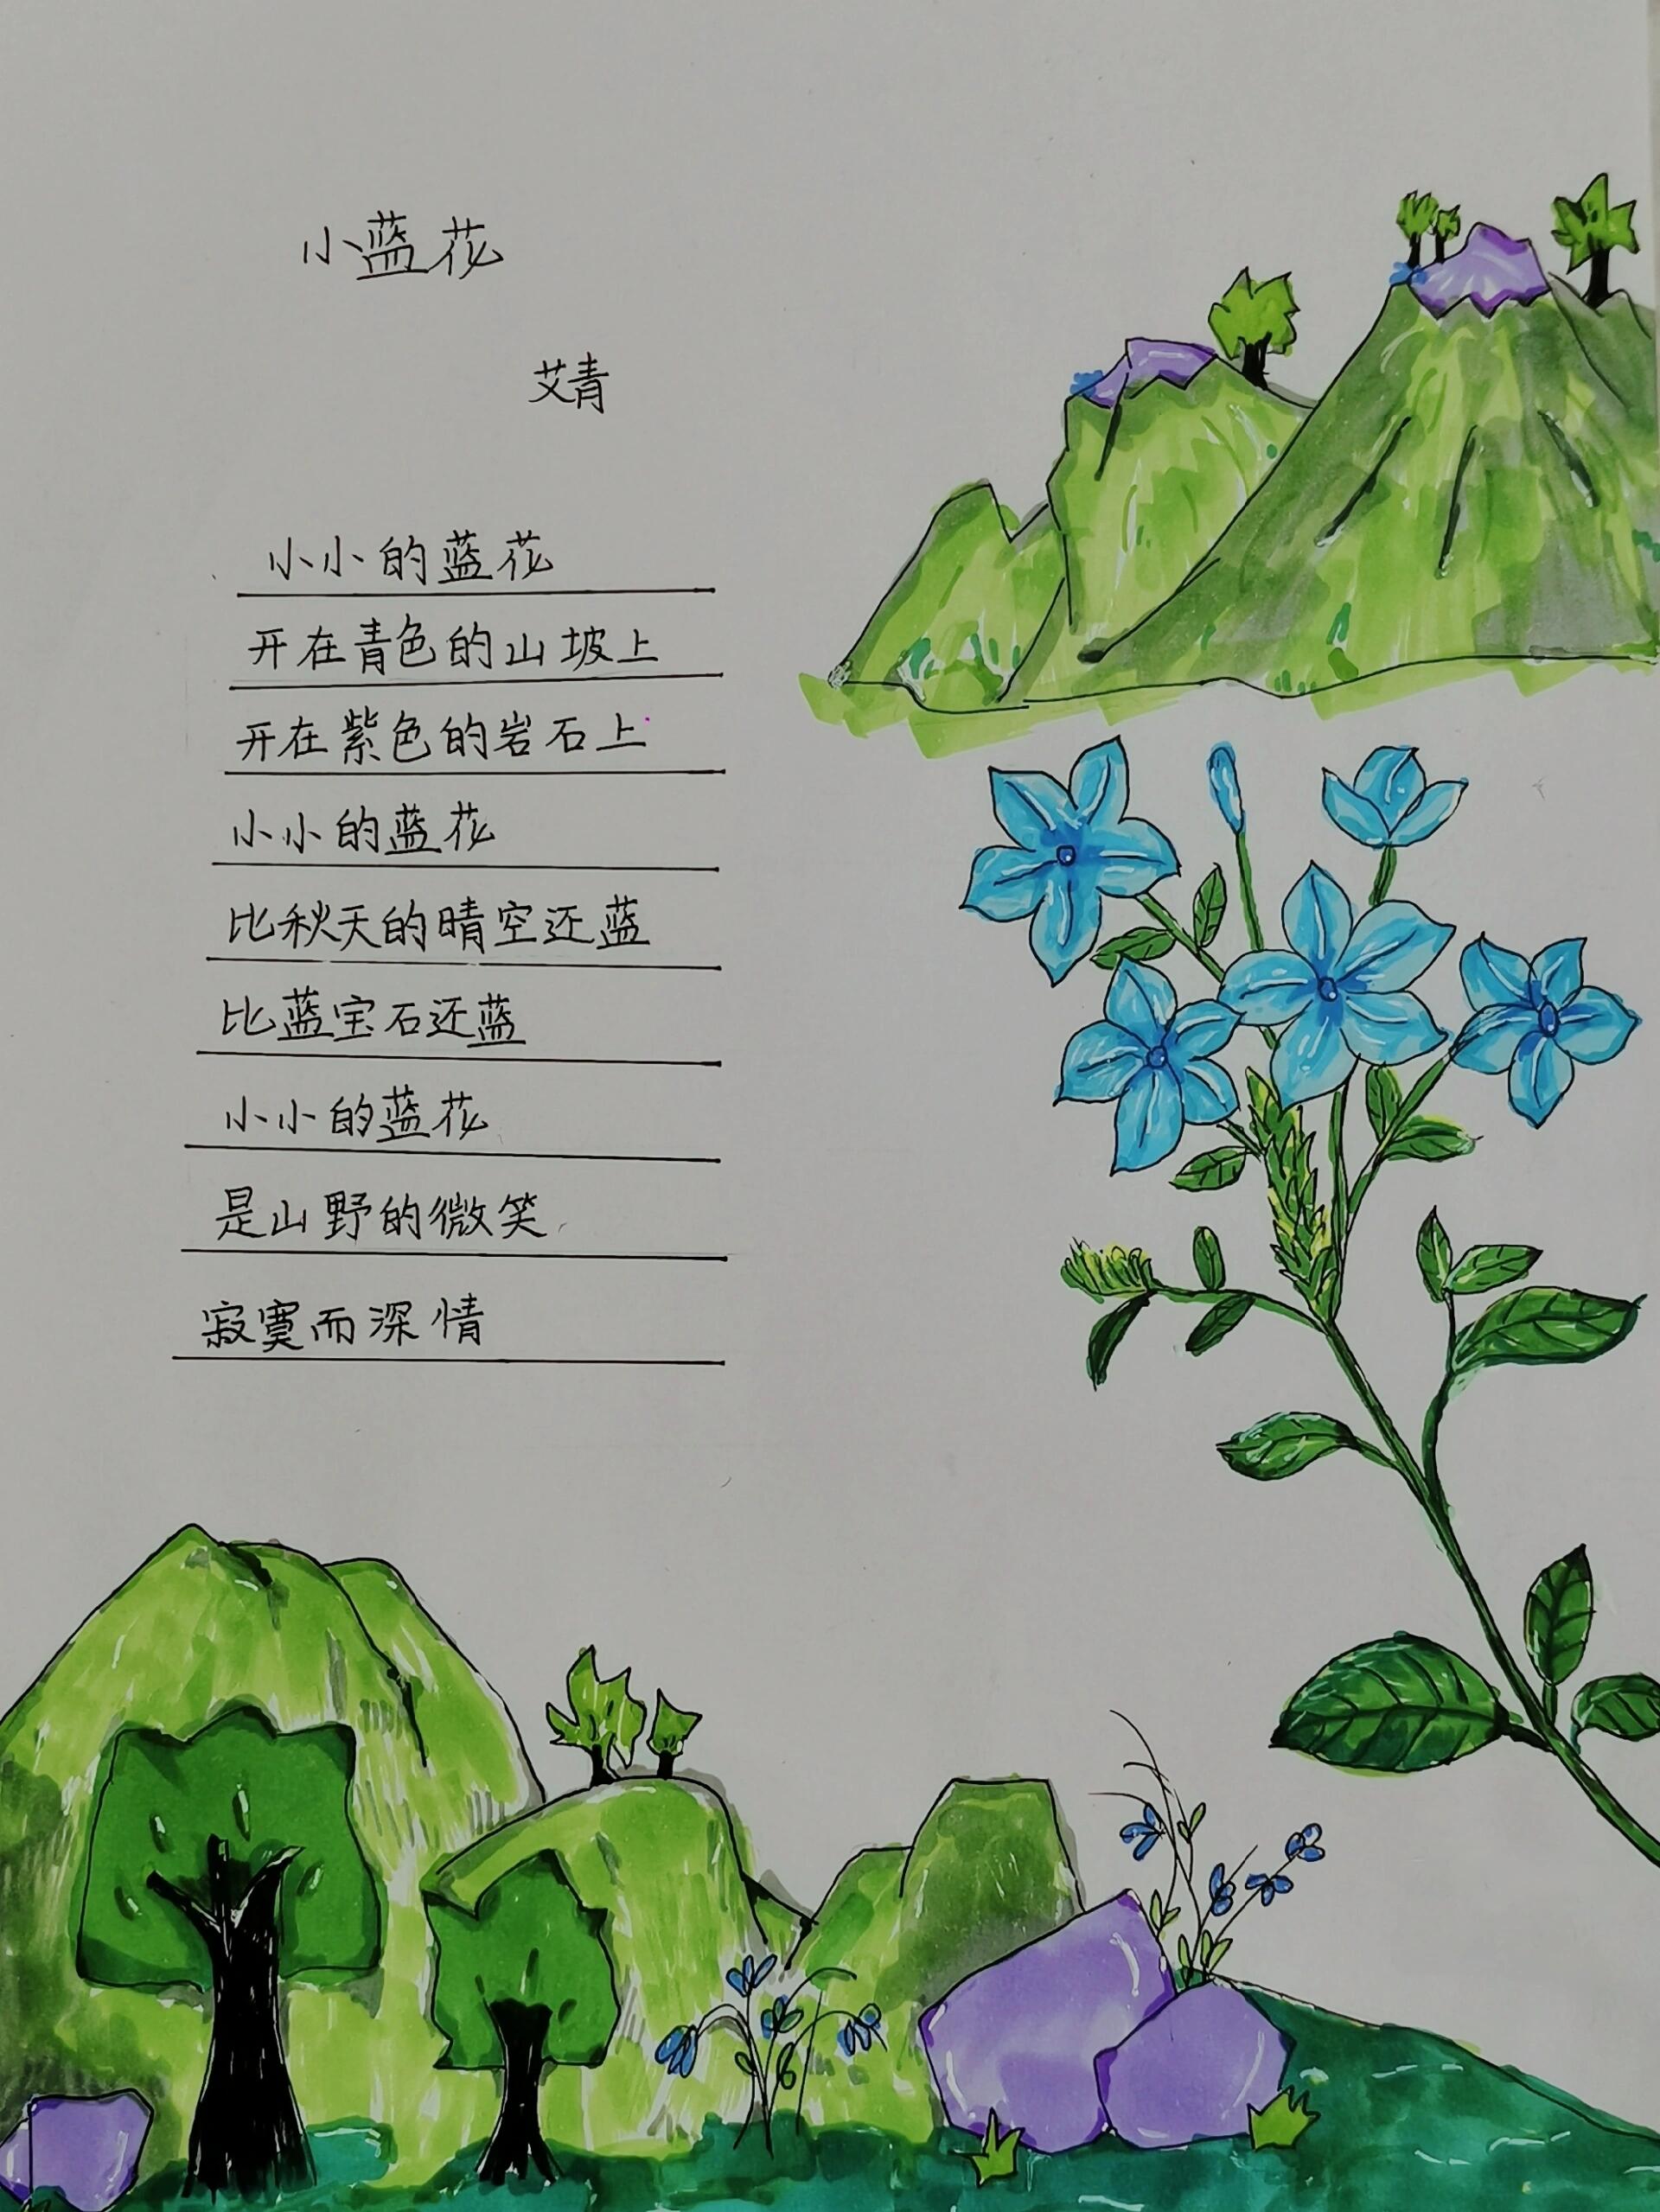 小蓝花
艾青
小小的蓝花
开在青色的山坡上
开在紫色的岩石上
小小的蓝花
比秋天的晴空还蓝
比蓝宝石还蓝
小小的蓝花
是山野的微笑
寂寞而深情